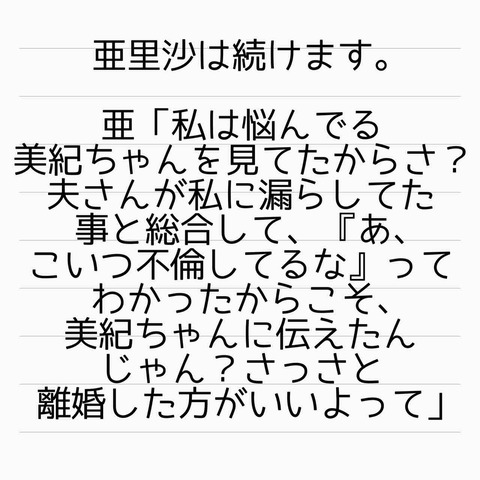 亜里沙は続けます。
亜「私は悩んでる
美紀ちゃんを見てたからさ？
夫さんが私に漏らしてた
事と総合して、『あ、
こいつ不倫してるな』って
わかったからこそ、
美紀ちゃんに伝えたん
じゃん？さっさと
離婚した方がいいよって」